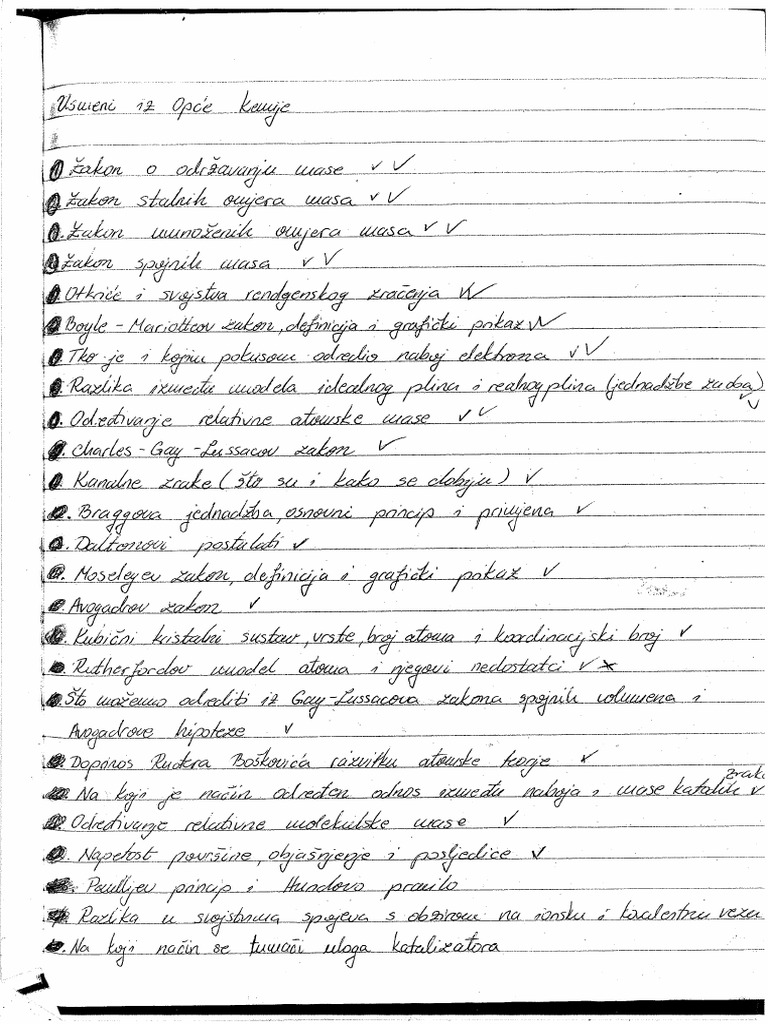 Usmeni iz Opće kemije
Zakon o održavanju mase ✓✓
Zakon stalnih omjera masa ✓✓
Zakon umnoženih omjera masa ✓✓
Zakon spojnih masa ✓✓
Otkriće i svojstva rendgenskog zračenja ✓✓
Boyle-Mariotteov zakon, definicija i grafički prikaz ✓✓
Tko je i kojim pokusom odredio naboj elektrona ✓✓
Razlika između modela idealnog plina i realnog plina (jednadžbe za oba) ✓✓
Određivanje relativne atomske mase ✓✓
Charles-Gay-Lussacov zakon ✓
Kanalne zrake (što su i kako se dobiju) ✓
Braggova jednadžba, osnovni princip i primjena ✓
Daltonovi postulati ✓
Moseleyev zakon, definicija i grafički prikaz ✓
Avogadrov zakon ✓
Kubični kristalni sustav, vrste, broj atoma i koordinacijski broj ✓
Rutherfordov model atoma i njegovi nedostatci ✓ x
Što možemo odrediti iz Gay-Lussacova zakona spojnih volumena i
Avogadrove hipoteze ✓
Doprinos Ruđera Boškovića razvitku atomske teorije ✓
Na koji je način određen odnos između naboja i mase katodnih zraka ✓
Određivanje relativne molekulske mase ✓
Napetost površine, objašnjenje i posljedice ✓
Paulijev princip i Hundovo pravilo
Razlika u svojstvima spojeva s obzirom na ionsku i kovalentnu vezu
Na koji način se tumači uloga katalizatora